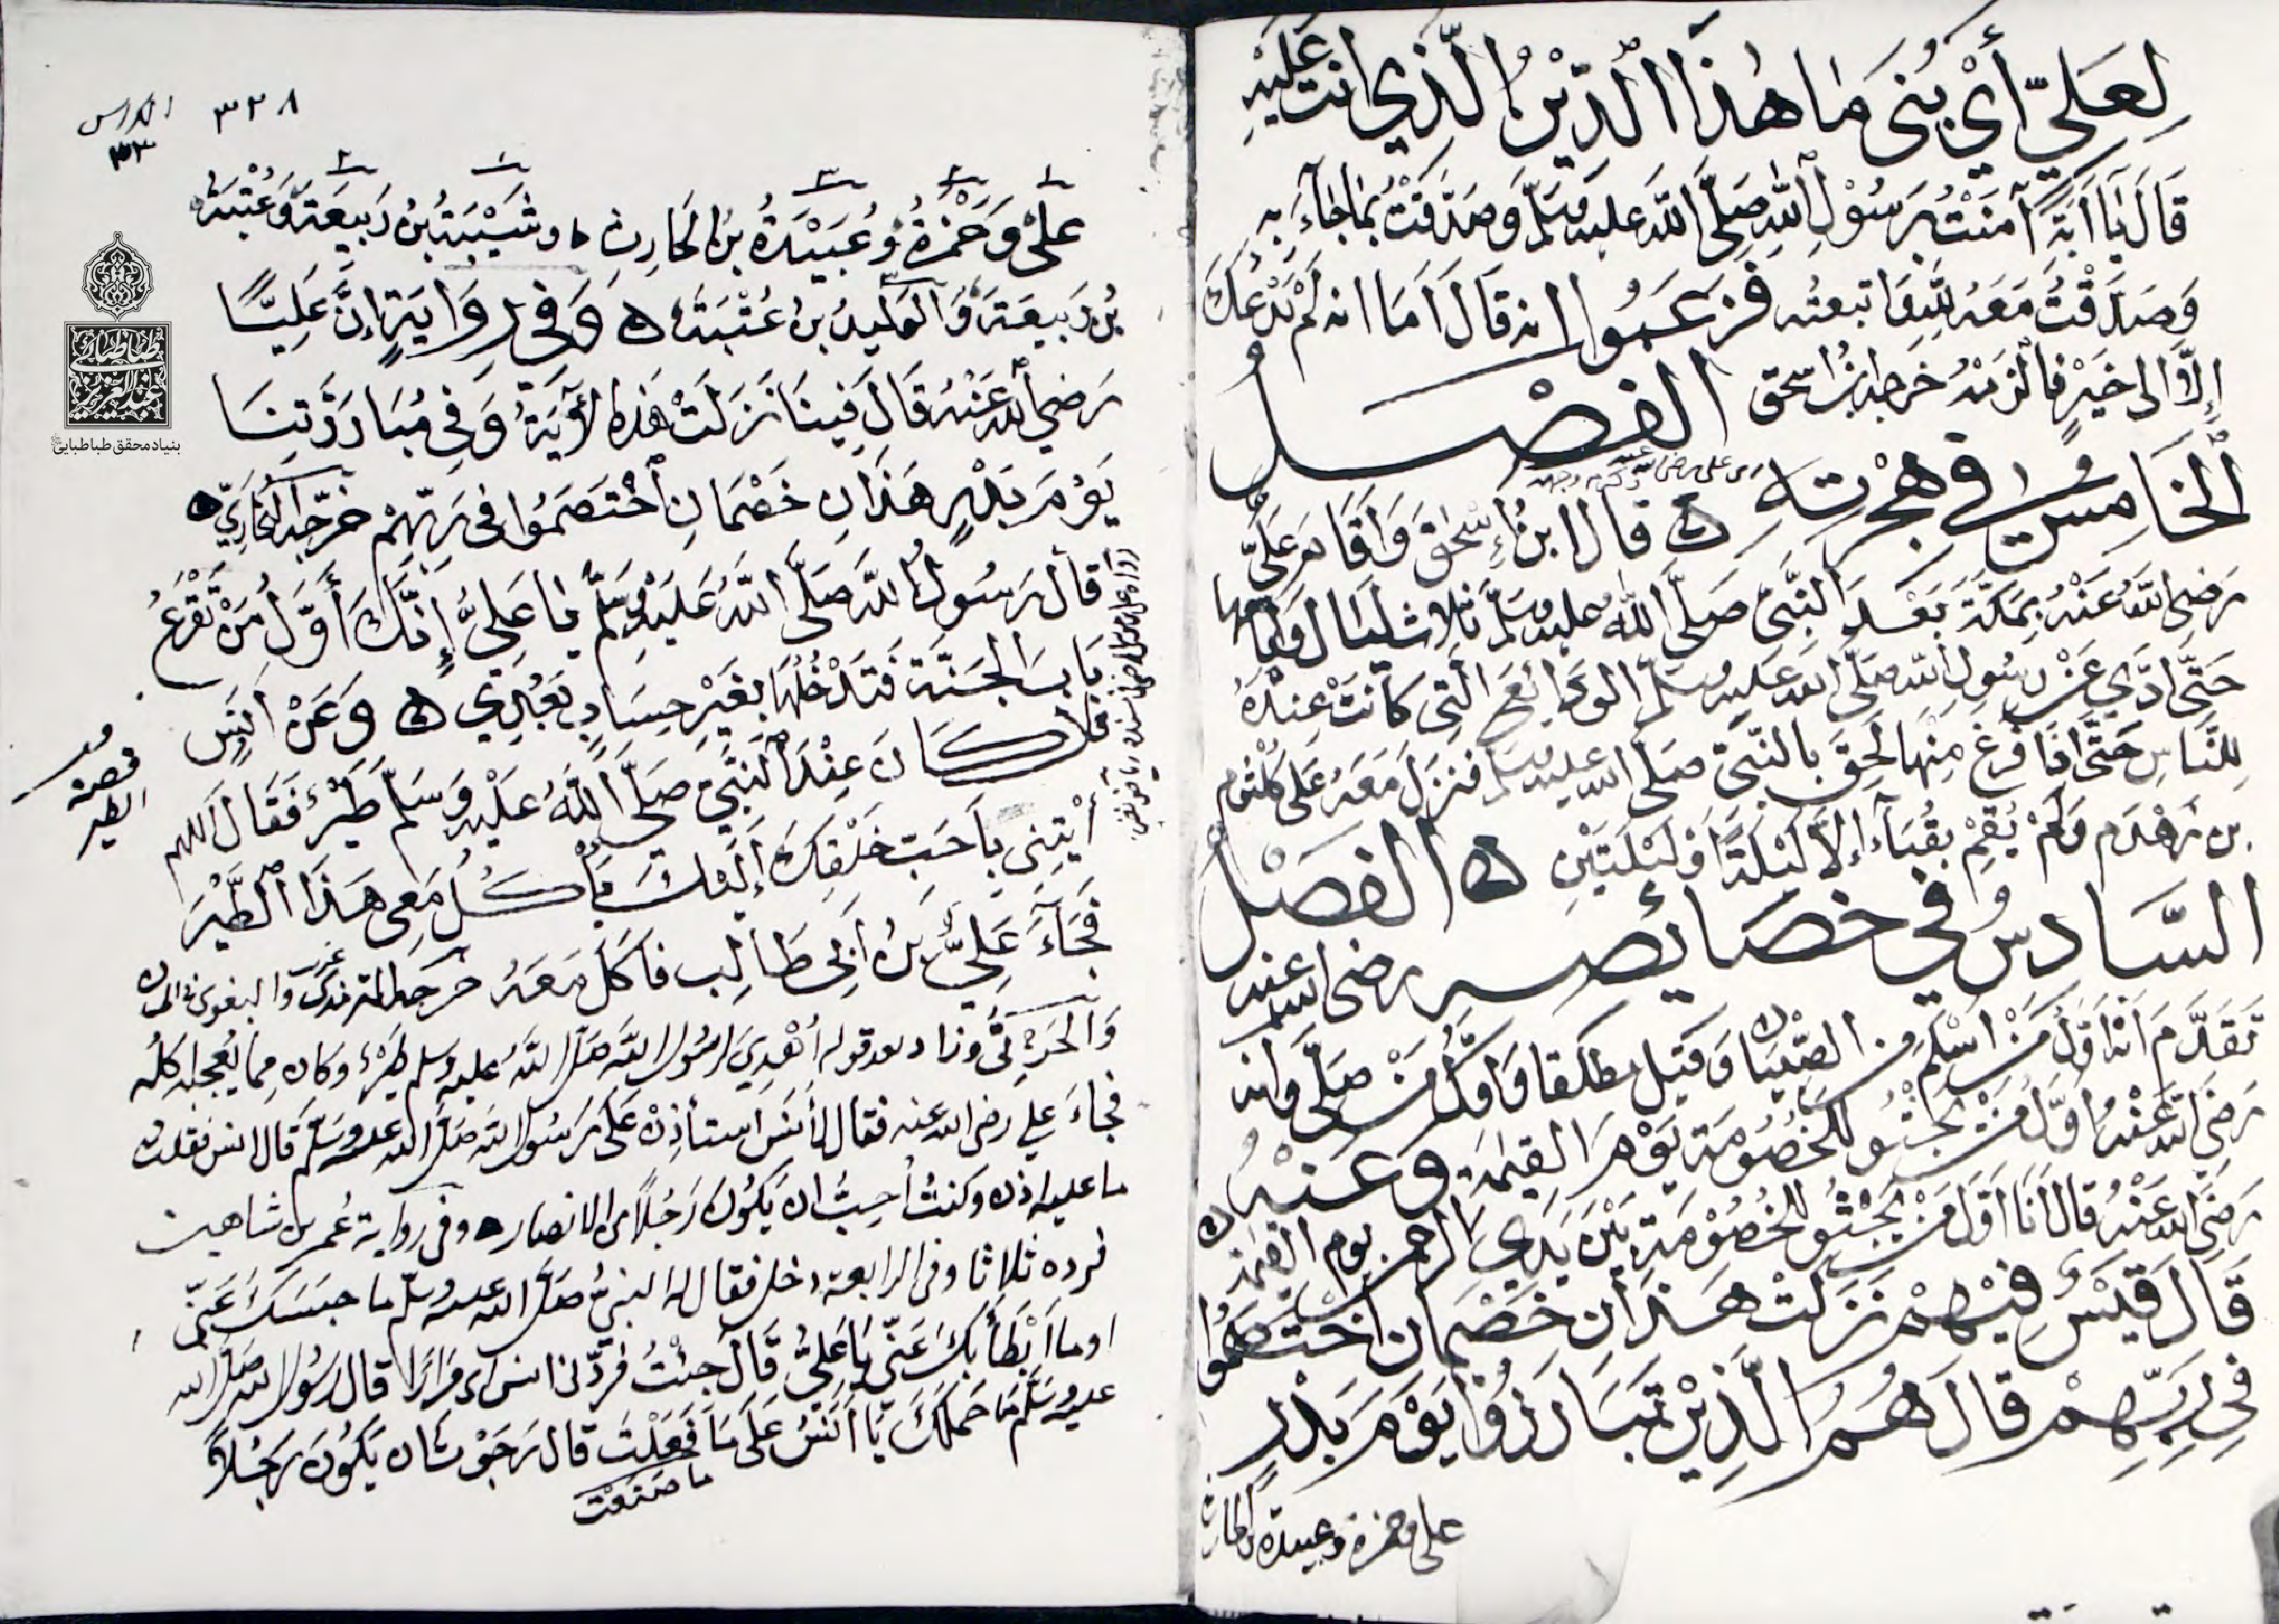 لِعَلِيٍّ أَيْ بُنَيَّ مَا هٰذَا الدِّيْنُ الَّذِي انت عَلَيْهِ
قَالَ يَا اَبَةِ آمَنْتُ بِرَسُوْلِ اللهِ صَلَّى اللهُ عليه وسَلَّم وَصَدَّقتْتُ بِمَا جَاءَ بِهِ
وَصَدَّقْتُ مَعَهُ لله وَاتبعته فزعَمُوا انه قَالَ اَمَا انه لَمْ يَدْعُكَ
إِلَّا الى خَيْرٍ فالزمْهُ خرجه ابن اسحق الفصْل
الخَامِسُ في هِجْرته ه قال ابنُ إسْحٰقَ وَاقَام عَلِيّ
اى على رضى الله عنه وكرم وجهه
رَضِىَ اللهُ عَنْهُ بِمَكَّةَ بَعْدَ النَّبِىّ صَلَّى الله عليه وسَلَّم ثلاث لَيَال وَايامها
حَتَّى ادَّي عَنْ رسُولِ الله صلَّى الله عَلَيه وسَلَّم الودَائعَ الَّتِى كَانَتْ عِنْدَهُ
لِلنَّاسِ حَتَّى اذَا فَرغَ مِنْهَا لَحِقَ بالنَّبىّ صلى الله عليه وسلم فنزلَ مَعَهُ عَلى كُلثوم
بن زهدم وَلَمْ يُقِمْ بقُبَآءَ إِلَّا لَيْلَةً اَوْ لَيْلَتَيْنِ ه الفَصْل
السَّادسُ في خصَائصه رضى الله عنه
تَقَدَّمَ اَنَّهُ اَوَّلُ مَنْ اَسْلمَ من الصّبْيَان وَقيل مطلقا وَاوّلُ مَنْ صلَّى وَانه
رَضيَ اللهُ عَنْهُ اوَّل مَنْ يَجْثُو للخصُومَة يَوْمَ القيٰمَة وعَنْهُ
رَضيَ الله عَنْهُ قال اَنَا اوَّلَ مَنْ يَجْثُو للخصُوْمَة بَيْنَ يَدَي الرحمن يوم القيمة
قَالَ قَيْسٌ فيْهِمْ نَزَلتْ هَذَانِ خَصْمَان اخْتصَمُوا
فى رَبِّهِمْ قالَ هُمُ الَّذِيْنَ تَبَارَزُوْا يَوْمَ بَدْرٍ
على وحمزة وعبيدة بن الحارث
٣٣٨
الكراس
٣٣
عَلِيٌّ وَحَمْزَةُ وَعُبَيْدَةُ بنُ الحَارِث ه وشَيْبَةُ بْنُ رَبِيعَةَ وَعُتْبَةُ
بْنُ رَبِيعَةَ وَالوَلِيدُ بنُ عُتْبَةَ ه وَفي رِوَايَةٍ إِنَّ عَلِيًّا
رَضىَ اللهُ عَنْهُ قَالَ فِينَا نَزَلَتْ هَذِه الآيَةُ وَفي مُبَارَزَتِنَا
يَوْمَ بَدْرٍ هَذَانِ خَصْمَانِ اخْتَصَمُوا في رَبِّهِمْ خَرَّجَه البُخَارِيّ ه
قال رَسُولُ الله صَلَّى اللهُ عَلَيْهِ وسَلَّم يا عَلِيُّ إِنَّكَ أَوَّلُ مَنْ تَقْرَعُ
بَابَ الجَنَّة فَتَدْخُلُهَا بِغَيْرِ حِسَابٍ بَعْدِي ه وَعَنْ اَنَسٍ
قال كَانَ عِنْدَ النَّبِيّ صَلَّى اللهُ عَلَيْهِ وَسَلَّم طَيْرٌ فَقَال اللهم
قصة
الطير
اْيتِنى بِأَحَبّ خَلْقِكَ إِلَيْكَ يَأْكُلُ مَعِى هَذَا الطَّيْرَ
فَجَآءَ عَلِيُّ بنُ أَبي طَالِب فاَكَلَ مَعَهُ خرجه الترمذى والبغوى في الحسان
غريب
وَالحَرْبي وزاد بعد قوله أُهْدِيَ لرسُول الله صَلَّى اللهُ عليه وسلم طَيْرٌ وكان مما يُعجبه اكله
فجاءَ علي رضى الله عنه فقال لأَنَس استأذِنْ عَلَى رَسُول الله صَلَّى الله عليه وسَلَّم قال انس فقلت
ما عليه اذن وكنتُ أحبُّ ان يَكُوْنَ رَجُلًا من الانصار ه وفى رواية عُمر بن شاهين
فرده ثلاثا وفى الرابعة دخل فقال له النبيُّ صَلَّى الله عليه وسلّم ما حبسَكَ عَنّي
اوما اَبْطَأَ بِكَ عَنّي يَا عَلِيُّ قَالَ جِئْتُ فَردّنى انس ... مِرَارًا قال رسُول الله صلى الله
عليه وسَلَّم مَا حَمَلَكَ يَا اَنَسُ عَلَى مَا فَعَلْتَ قال رَجَوْتُ ان يَكُونَ رَجُلاً
ما صَنَعْتَ
طباطبائى
عبدالعزیز
بنیاد محقق طباطبایی